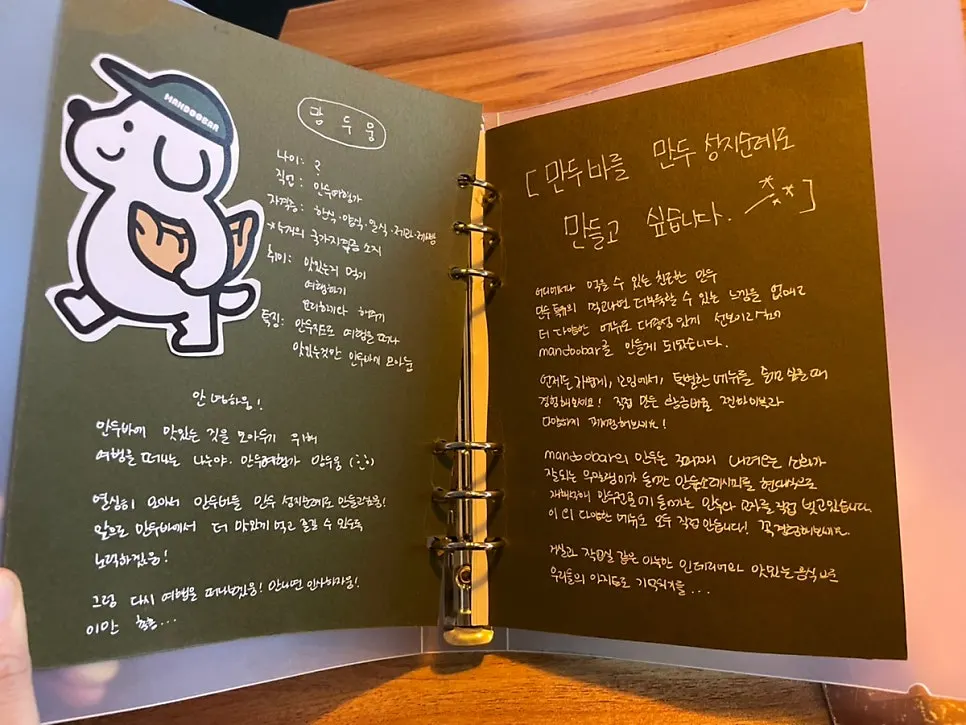 MANDOOBAR
맘 두 웅
나이: ?
직업: 만두여행가
자격증: 한식·양식·일식·제과·제빵
취미: 맛있는거 먹기
여행하기
요리하기
특징: 만두지도로 여행을 떠나
맛있는것만 만두바에 모아둠
안녕하웅!
만두바에 맛있는 것을 모아두기 위해
여행을 떠나는 나는야. 만두여행가 맘두웅
열심히 모아서 만두바를 만두 성지순례로 만들고말웅!
앞으로 만두바에서 더 맛있게 먹고 즐길 수 있도록
노력하겠웅!
그럼 다시 여행을 떠나보겠웅! 만나면 인사하자웅!
이만 총총...
[만두바를 만두 성지순례로
만들고 싶습니다. ]
어디에서나 먹을 수 있는 친근한 만두
만두 특유의 먹고나면 더부룩할 수 있는 느낌을 없애고
더 다양한 메뉴로 대중성 있게 선보이려
mandoobar를 만들게 되었습니다.
언제든 가볍게, 모임에서, 특별한 메뉴를 즐기고 싶을 때
경험해보세요! 직접 만든
다양하게 보세요!
mandoobar의 만두는 내려오는
만두소 레시피를 현대적으로
재해석하여 만두를 직접 빚고있습니다.
이 외 다양한 메뉴도 모두 직접 만듭니다! 꼭 경험해보세요.
거실과 작업실 같은 아늑한 인테리어와 맛있는 음식으로
우리들의 아지트로 기억되기를...